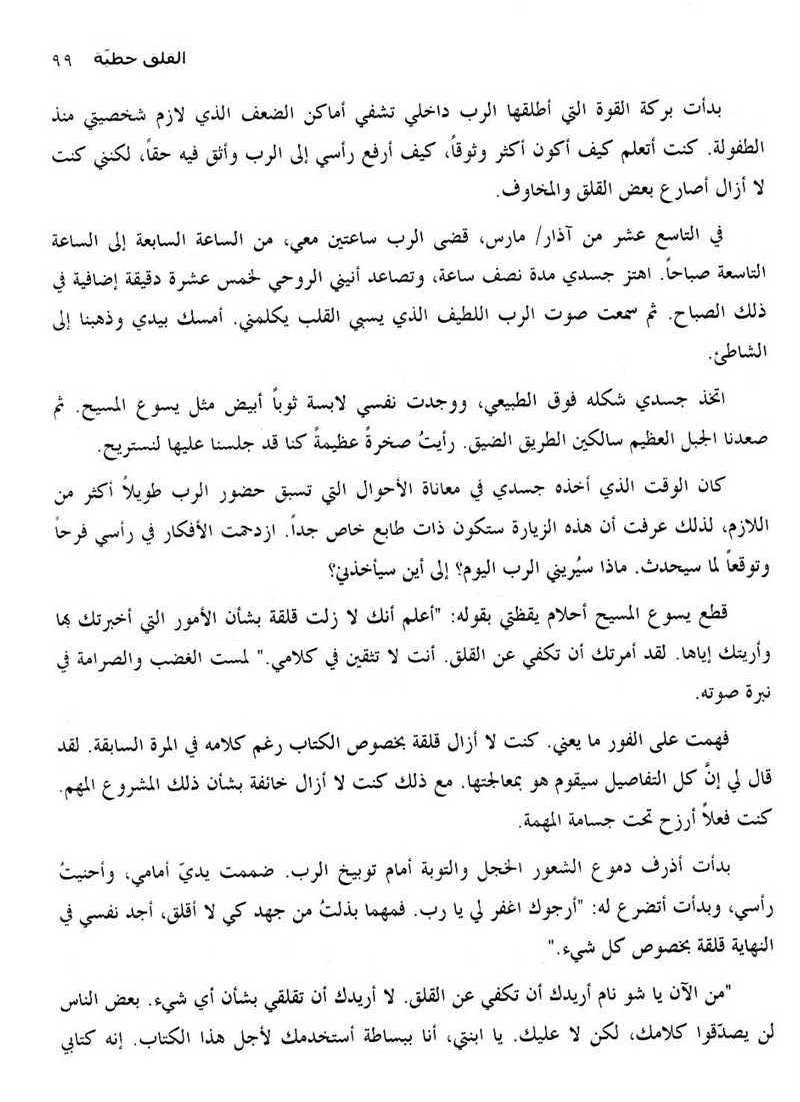 القلق خطيّة ٩٩
بدأت بركة القوة التي أطلقها الرب داخلي تشفي أماكن الضعف الذي لازم شخصيتي منذ
الطفولة. كنت أتعلم كيف أكون أكثر وثوقاً، كيف أرفع رأسي إلى الرب وأثق فيه حقاً، لكنني كنت
لا أزال أصارع بعض القلق والمخاوف.
في التاسع عشر من آذار/ مارس، قضى الرب ساعتين معي، من الساعة السابعة إلى الساعة
التاسعة صباحاً. اهتز جسدي مدة نصف ساعة، وتصاعد أنيني الروحي لخمس عشرة دقيقة إضافية في
ذلك الصباح. ثم سمعت صوت الرب اللطيف الذي يسبي القلب يكلمني. أمسك بيدي وذهبنا إلى
الشاطئ.
اتخذ جسدي شكله فوق الطبيعي، ووجدت نفسي لابسة ثوباً أبيض مثل يسوع المسيح. ثم
صعدنا الجبل العظيم سالكين الطريق الضيق. رأيتُ صخرةً عظيمةً كنا قد جلسنا عليها لنستريح.
كان الوقت الذي أخذه جسدي في معاناة الأحوال التي تسبق حضور الرب طويلاً أكثر من
اللازم، لذلك عرفت أن هذه الزيارة ستكون ذات طابع خاص جداً. ازدحمت الأفكار في رأسي فرحاً
وتوقعاً لما سيحدث. ماذا سيُريني الرب اليوم؟ إلى أين سيأخذني؟
قطع يسوع المسيح أحلام يقظتي بقوله: "أعلم أنك لا زلت قلقة بشأن الأمور التي أخبرتك بها
وأريتك إياها. لقد أمرتك أن تكفي عن القلق. أنت لا تثقين في كلامي." لمست الغضب والصرامة في
نبرة صوته.
فهمت على الفور ما يعني. كنت لا أزال قلقة بخصوص الكتاب رغم كلامه في المرة السابقة. لقد
قال لي إنَّ كل التفاصيل سيقوم هو بمعالجتها. مع ذلك كنت لا أزال خائفة بشأن ذلك المشروع المهم.
كنت فعلاً أرزح تحت جسامة المهمة.
بدأت أذرف دموع الشعور الخجل والتوبة أمام توبيخ الرب. ضممت يديّ أمامي، وأحنيتُ
رأسي، وبدأت أتضرع له: "أرجوك اغفر لي يا رب. فمهما بذلتُ من جهد كي لا أقلق، أجد نفسي في
النهاية قلقة بخصوص كل شيء."
"من الآن يا شو نام أريدك أن تكفي عن القلق. لا أريدك أن تقلقي بشأن أي شيء. بعض الناس
لن يصدّقوا كلامك، لكن لا عليك. يا ابنتي، أنا ببساطة أستخدمك لأجل هذا الكتاب. إنه كتابي